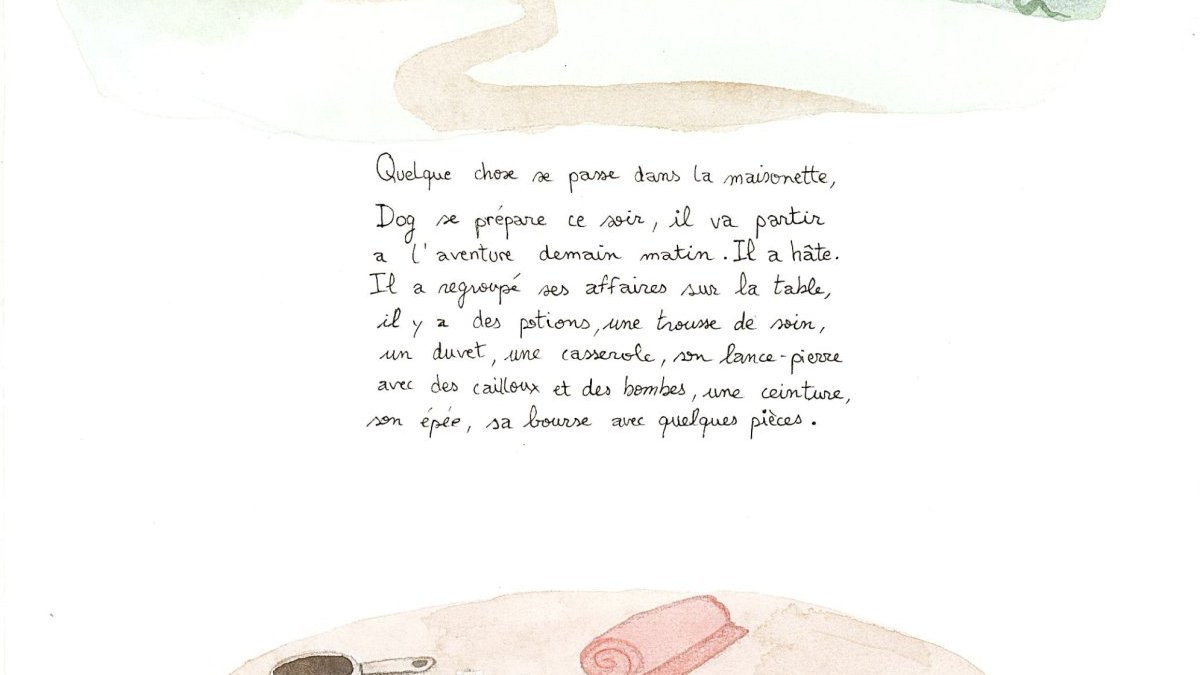 Quelque chose se passe dans la maisonette,
Dog se prépare ce soir, il va partir
a l'aventure demain matin. Il a hâte.
Il a regroupé ses affaires sur la table,
il y a des potions, une trousse de soin,
un duvet, une casserole, son lance-pierre
avec des cailloux et des bombes, une ceinture,
son épée, sa bourse avec quelques pièces.